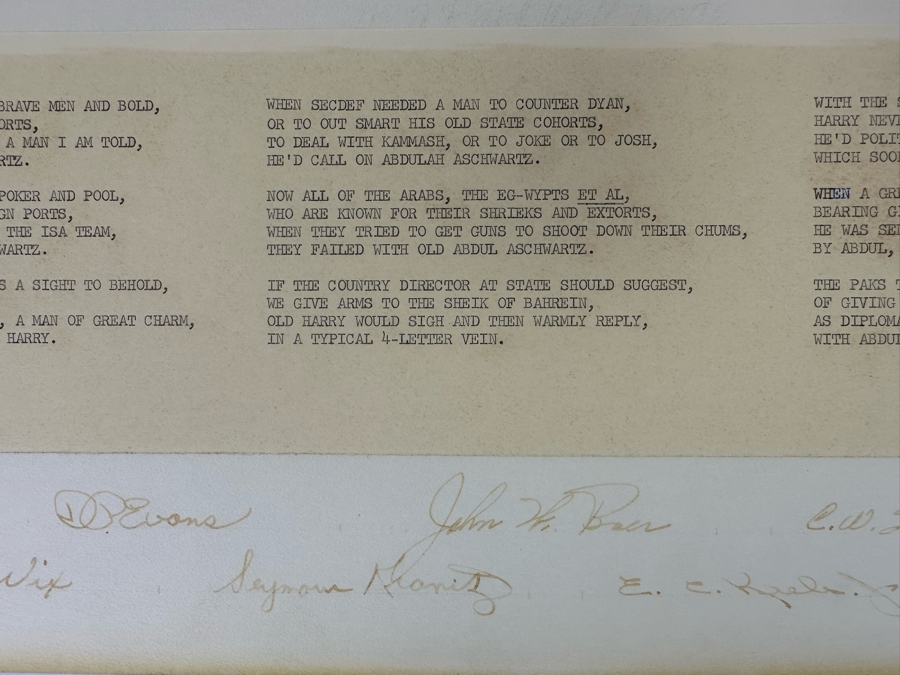 BRAVE MEN AND BOLD,
ORTS,
A MAN I AM TOLD,
RTZ.
POKER AND POOL,
GN PORTS,
THE ISA TEAM,
WARTZ.
S A SIGHT TO BEHOLD,
, A MAN OF GREAT CHARM,
HARRY.
WHEN SECDEF NEEDED A MAN TO COUNTER DYAN,
OR TO OUT SMART HIS OLD STATE COHORTS,
TO DEAL WITH KAMMASH, OR TO JOKE OR TO JOSH,
HE'D CALL ON ABDULAH ASCHWARTZ.
NOW ALL OF THE ARABS, THE EG-WYPTS ET AL,
WHO ARE KNOWN FOR THEIR SHRIEKS AND EXTORTS,
WHEN THEY TRIED TO GET GUNS TO SHOOT DOWN THEIR CHUMS,
THEY FAILED WITH OLD ABDUL ASCHWARTZ.
IF THE COUNTRY DIRECTOR AT STATE SHOULD SUGGEST,
WE GIVE ARMS TO THE SHEIK OF BAHREIN,
OLD HARRY WOULD SIGH AND THEN WARMLY REPLY,
IN A TYPICAL 4-LETTER VEIN.
WITH THE S
HARRY NEVE
HE'D POLIT
WHICH SOON
WHEN A GR
BEARING G
HE WAS SE
BY ABDUL,
THE PAKS T
OF GIVING
AS DIPLOMA
WITH ABDUL
DP Evans
John W. Baer
C. W.
Vix
Seymour Kravitz
E. C.